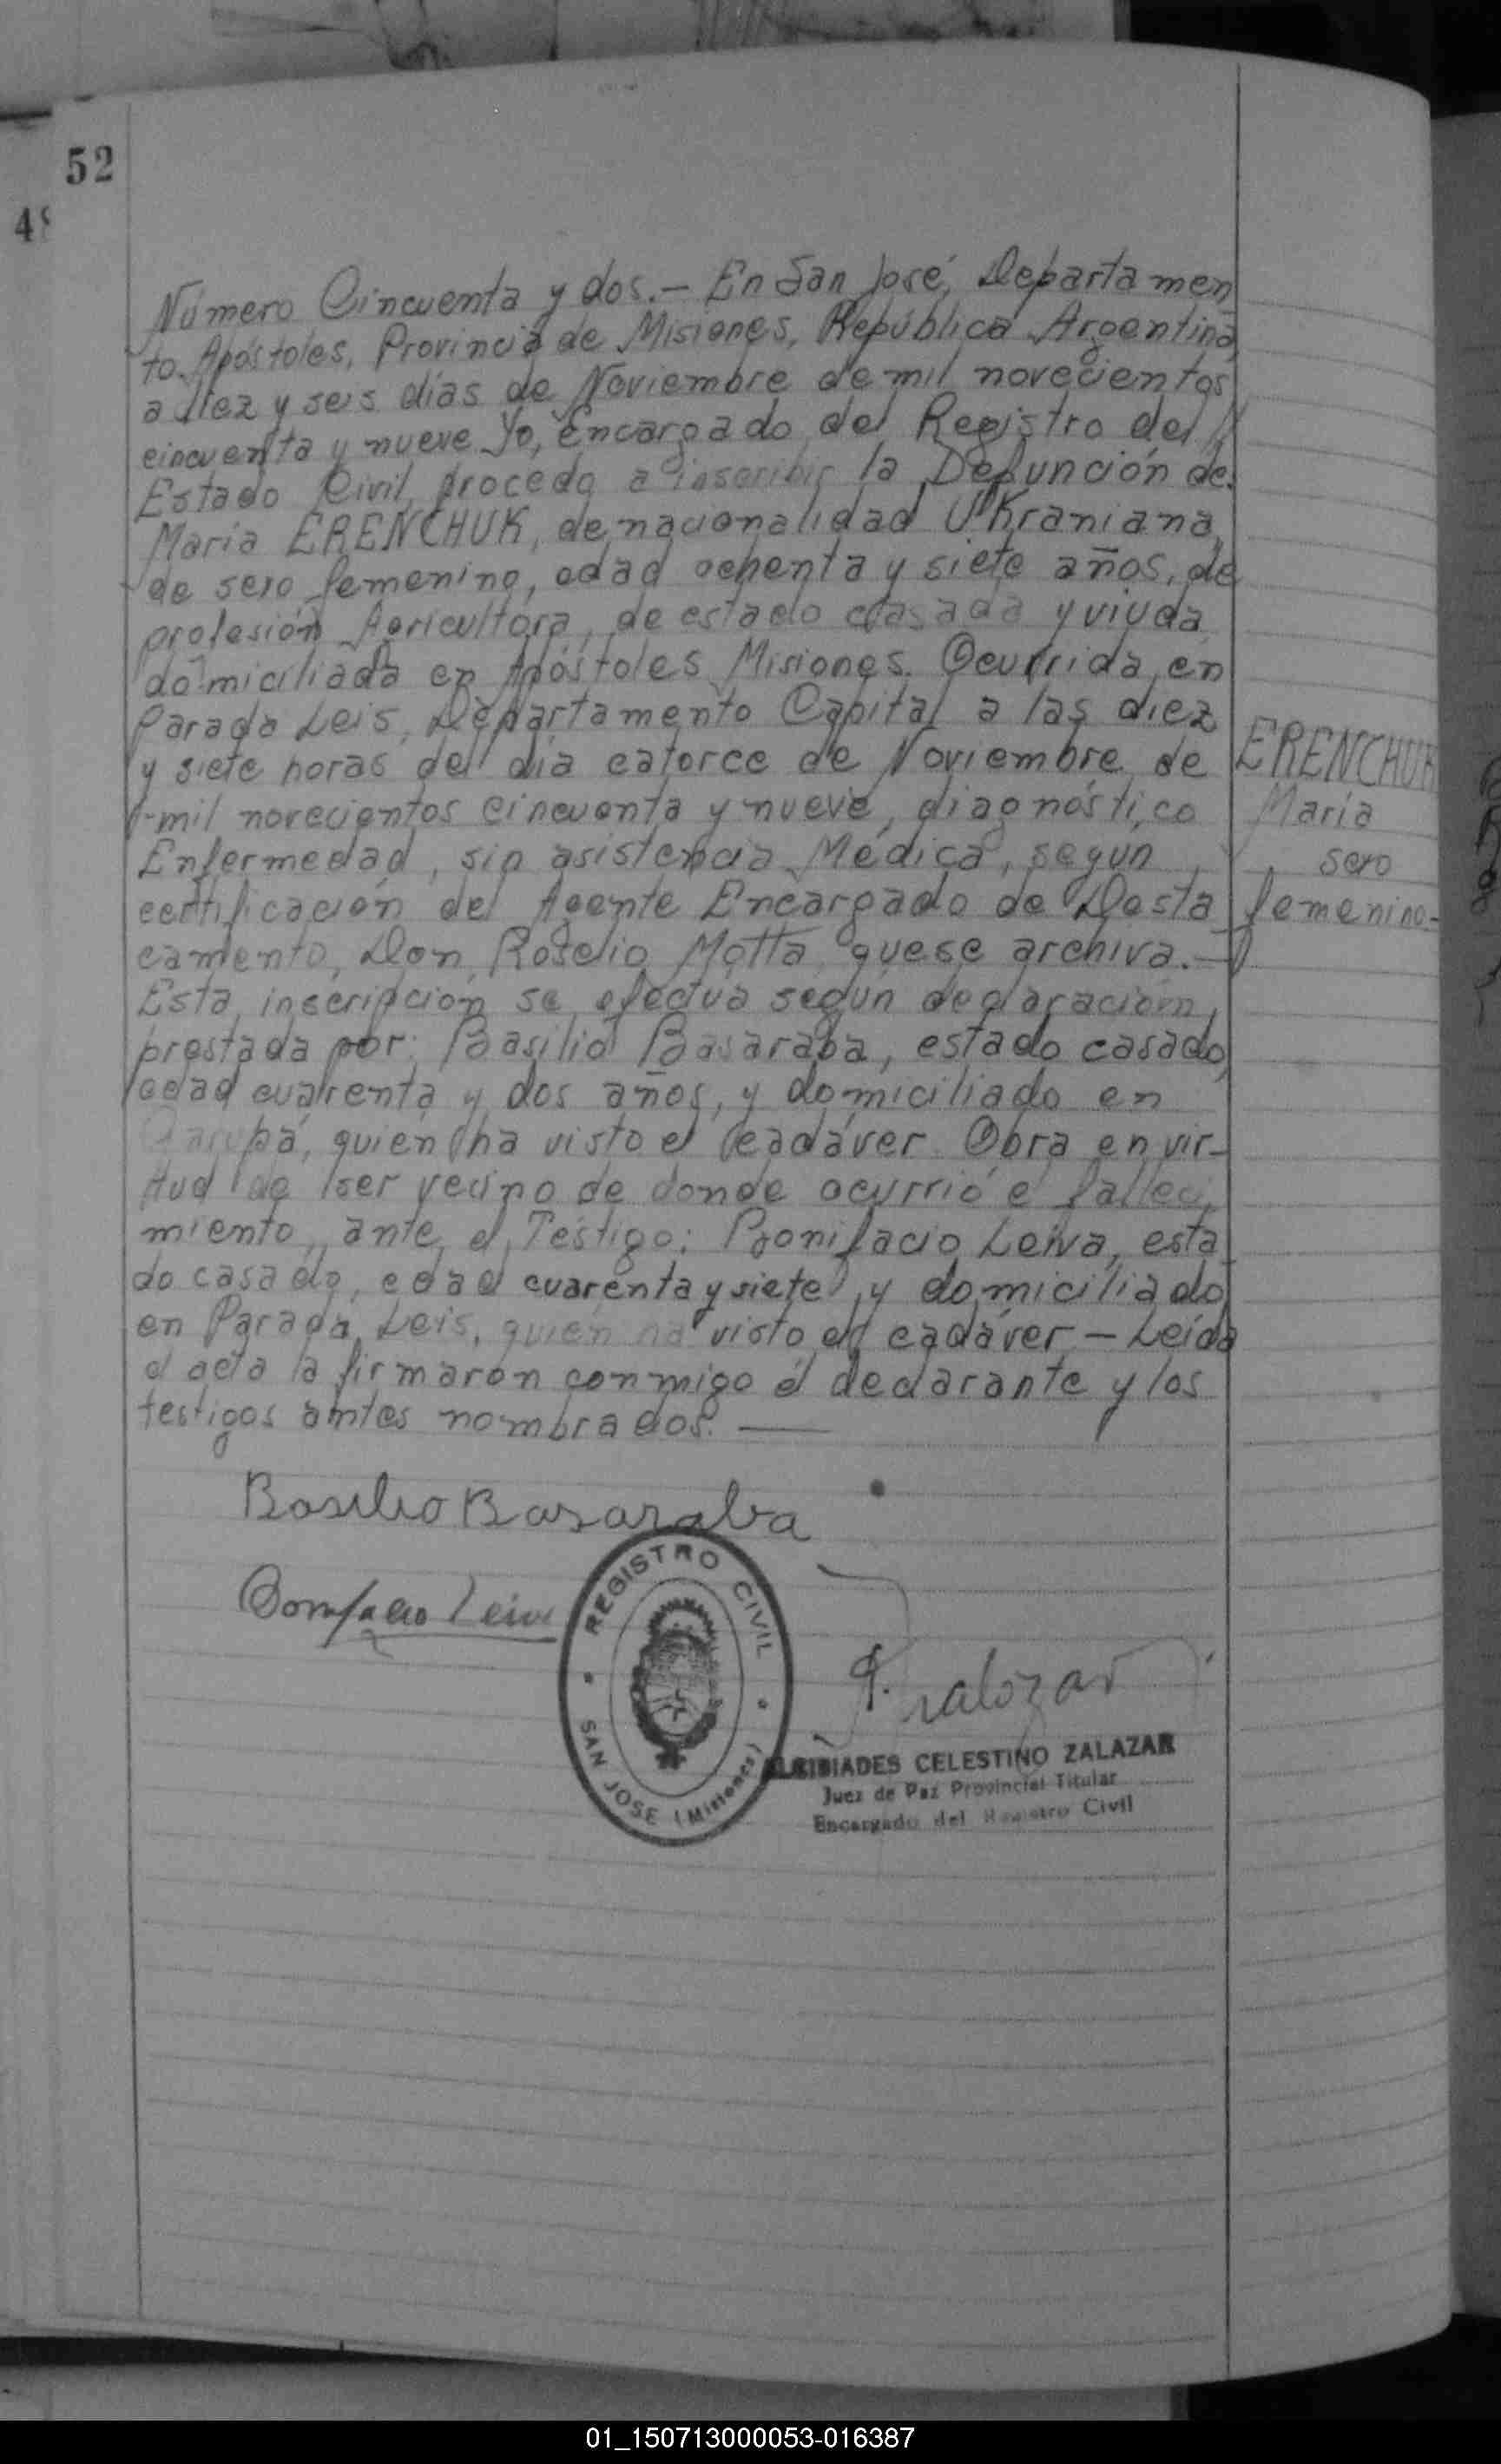 52
48
Número Cincuenta y dos.- En San José, Departamen
to Apóstoles, Provincia de Misiones, República Argentina,
a diez y seis días de Noviembre de mil novecientos
cincuenta y nueve Yo, Encargado del Registro del
Estado Civil, procedo a inscribir la Defunción de:
María ERENCHUK, de nacionalidad Ukraniana,
de sexo femenino, edad ochenta y siete años, de
profesión Agricultora, de estado casada y viuda,
domiciliada en Apóstoles Misiones. Ocurrida en
Parada Leis, Departamento Capital a las diez
y siete horas del día catorce de Noviembre de
mil novecientos cincuenta y nueve, diagnóstico
Enfermedad, sin asistencia Médica, según
certificación del Agente Encargado de Desta
camento, Don Roselio Motta, que se archiva.-
Esta inscripción se efectua según declaración
prestada por: Basilio Basaraba, estado casado,
edad cuarenta y dos años, y domiciliado en
Garupá, quien ha visto el cadáver. Obra en vir-
tud de ser vecino de donde ocurrió el falleci
miento, ante el Testigo: Bonifacio Leiva, esta
do casado, edad cuarenta y siete, y domiciliado
en Parada Leis, quien ha visto el cadáver - Leída
el acta la firmaron conmigo el declarante y los
testigos antes nombrados. —
ERENCHUK
María
sexo
femenino-
Basilio Basaraba
Bonifacio Leiva
REGISTRO CIVIL
SAN JOSE (Misiones)
Zalazar
ALCIBIADES CELESTINO ZALAZAR
Juez de Paz Provincial Titular
Encargado del Registro Civil
01_150713000053-016387